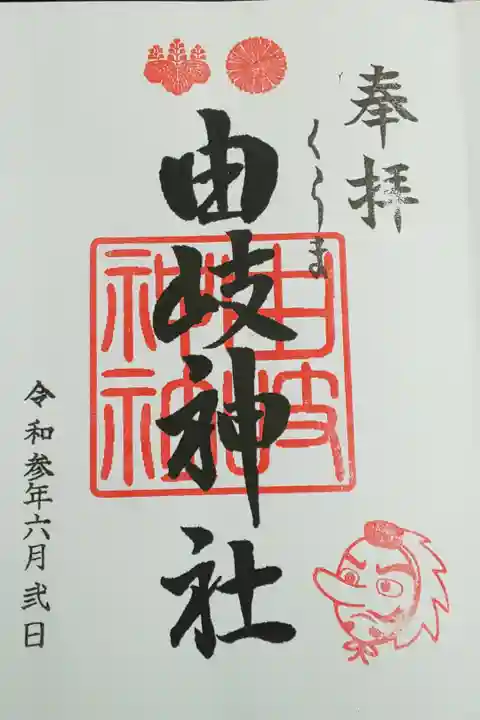 奉拝
くらま
由岐神社
令和参年六月弐日